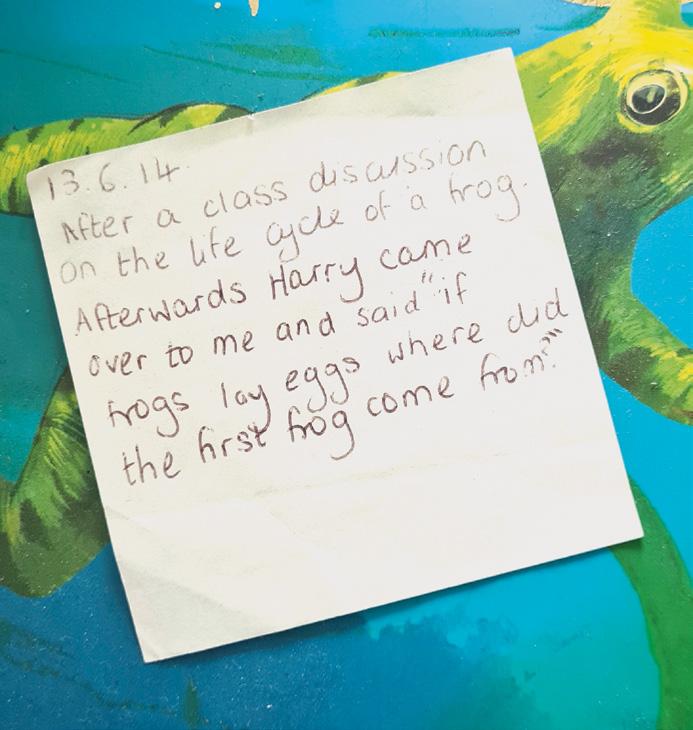 13.6.14.
After a class discussion
on the life cycle of a frog.
Afterwards Harry came
over to me and said "if
frogs lay eggs where did
the first frog come from?"